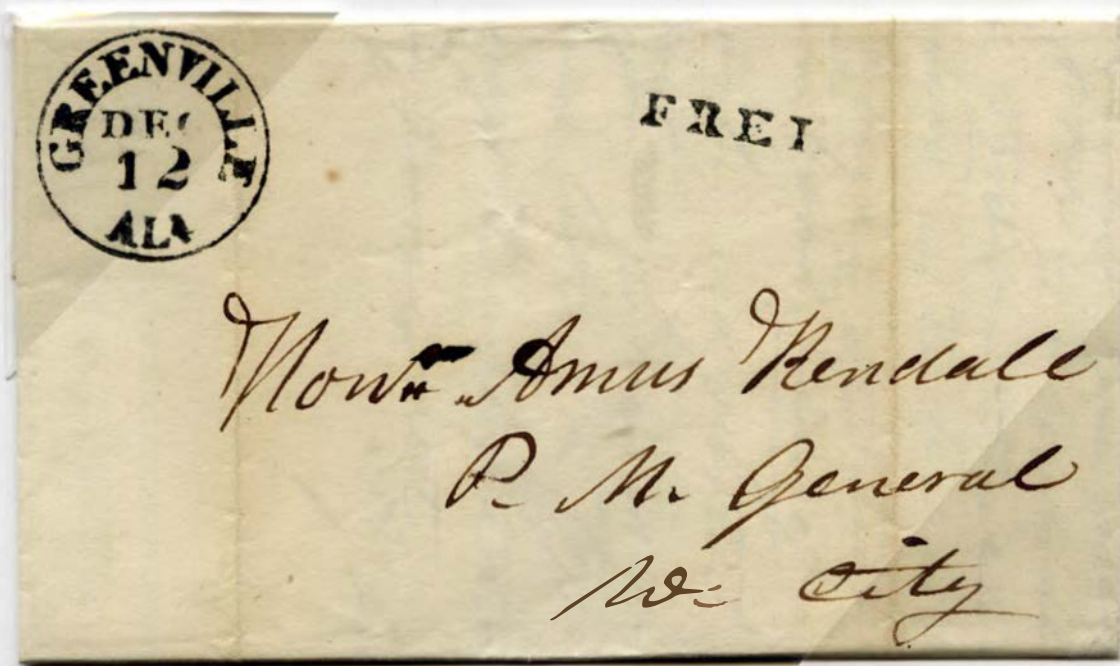 GREENVILLE
DEC
12
ALA
FREE
Honr. Amus Kendall
P. M. General
W. City